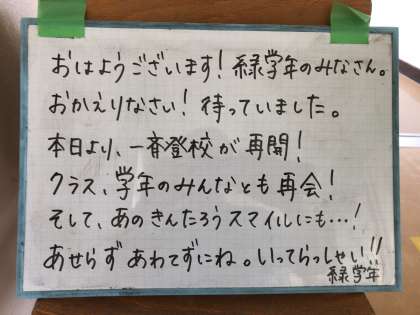 おはようございます！緑学年のみなさん。
おかえりなさい！待っていました。
本日より、一斉登校が再開！
クラス、学年のみんなとも再会！
そして、あのきんたろうスマイルにも…！
あせらずあわてずにね。いってらっしゃい!!
緑学年